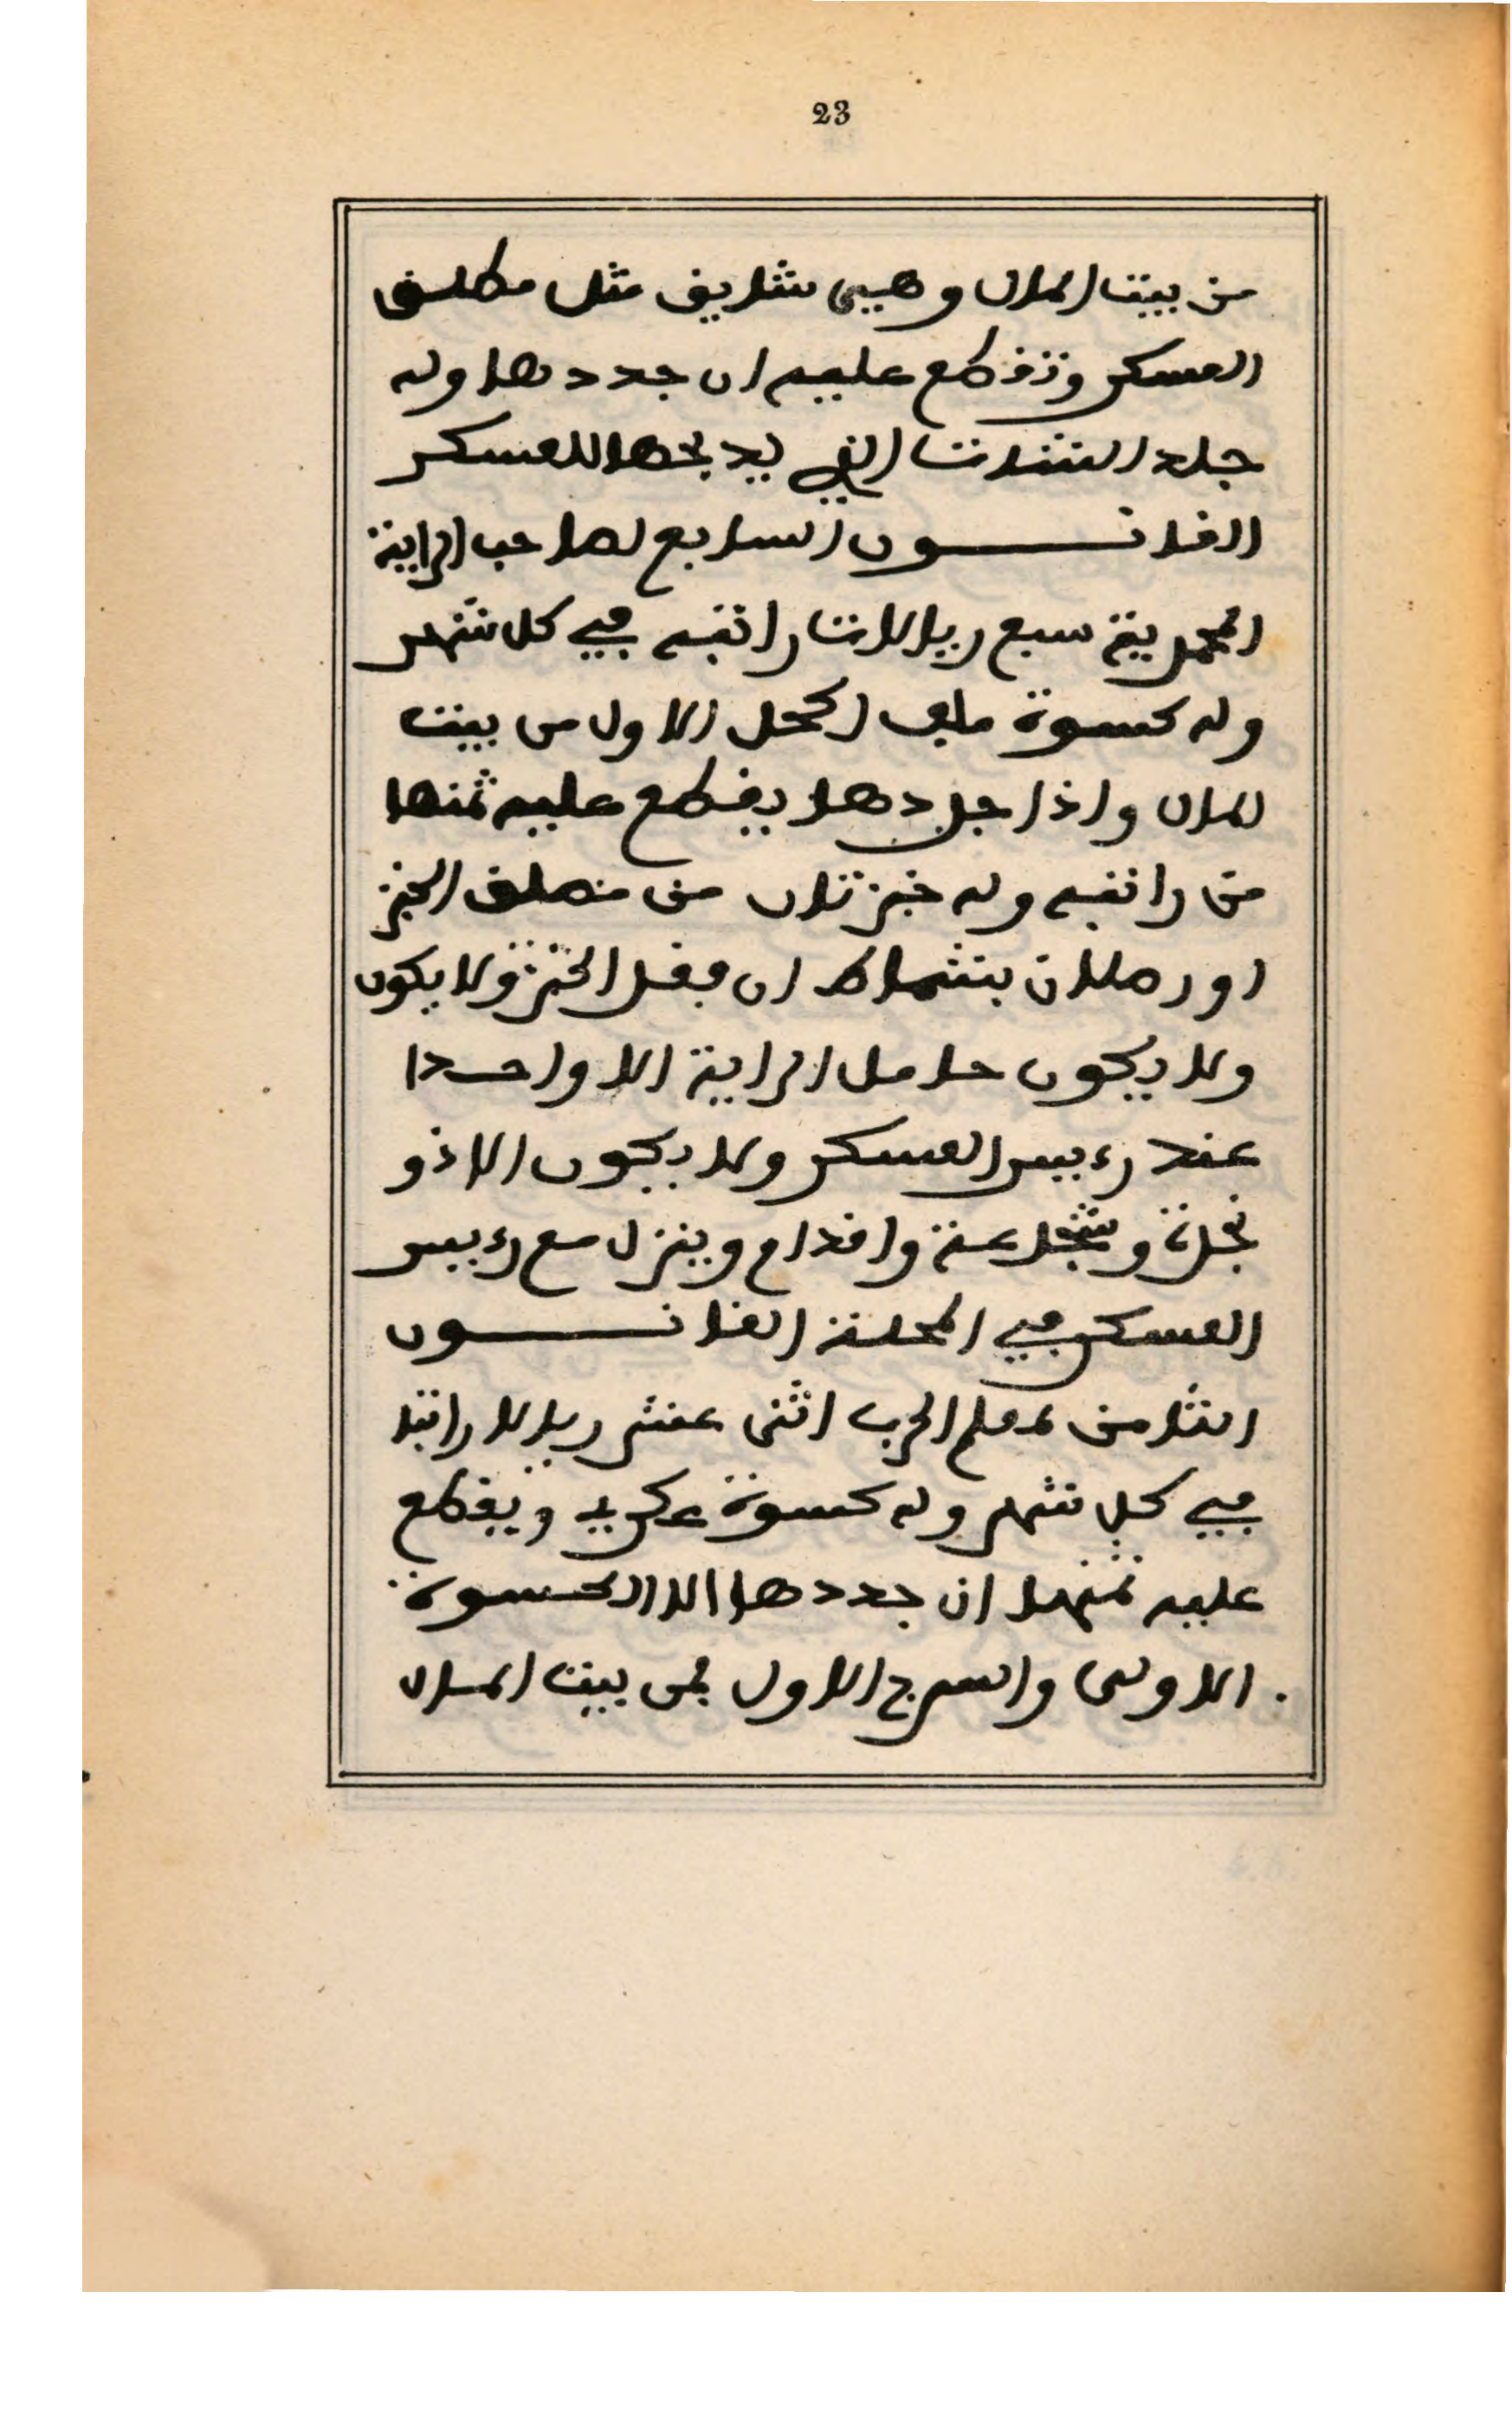 23
من بيت المال وهيى شاريف مثل مطلف
العسكر وتفطع عليه ان جددها وله
جلد الشات التي يذبحها للعسكر
الفانون السابع لصاحب الراية
المحمدية سبع ريالات راتبه في كل شهر
وله كسوة ملف اكحل الاول من بيت
المال واذا جددها يفطع عليه ثمنها
من راتبه وله خبزتان من مطلف الخبز
او رطلان بشماط ان فقد الخبز ولا يكون
ولا يكون حامل الراية الا واحدا
عند رءيس العسكر ولا يكون الا ذو
نجدة وشجاعة وافدام وينزل مع رءيس
العسكر في المحلة الفانون
الثامن معلم الحرب اثنى عشر ريالا راتبا
في كل شهر وله كسوة عكريه ويفطع
عليه ثمنها ان جددها الا الكسوة
الاولى والسرج الاول فمن بيت المال